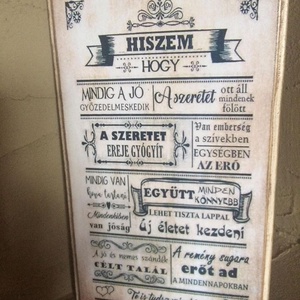 HISZEM
HOGY
MINDIG A JÓ
GYŐZEDELMESKEDIK
A szeretet
ott áll
mindenek
fölött
A SZERETET
EREJE GYÓGYÍT
Van emberség
a szívekben
EGYSÉGBEN
AZ ERŐ
MINDIG VAN
hova tartani
Mindenkiben
van jóság
EGYÜTT
MINDEN
KÖNNYEBB
LEHET TISZTA LAPPAL
új életet kezdeni
A jó és nemes szándék
CÉLT TALÁL
A remény sugara
erőt ad
A MINDENNAPOKBAN